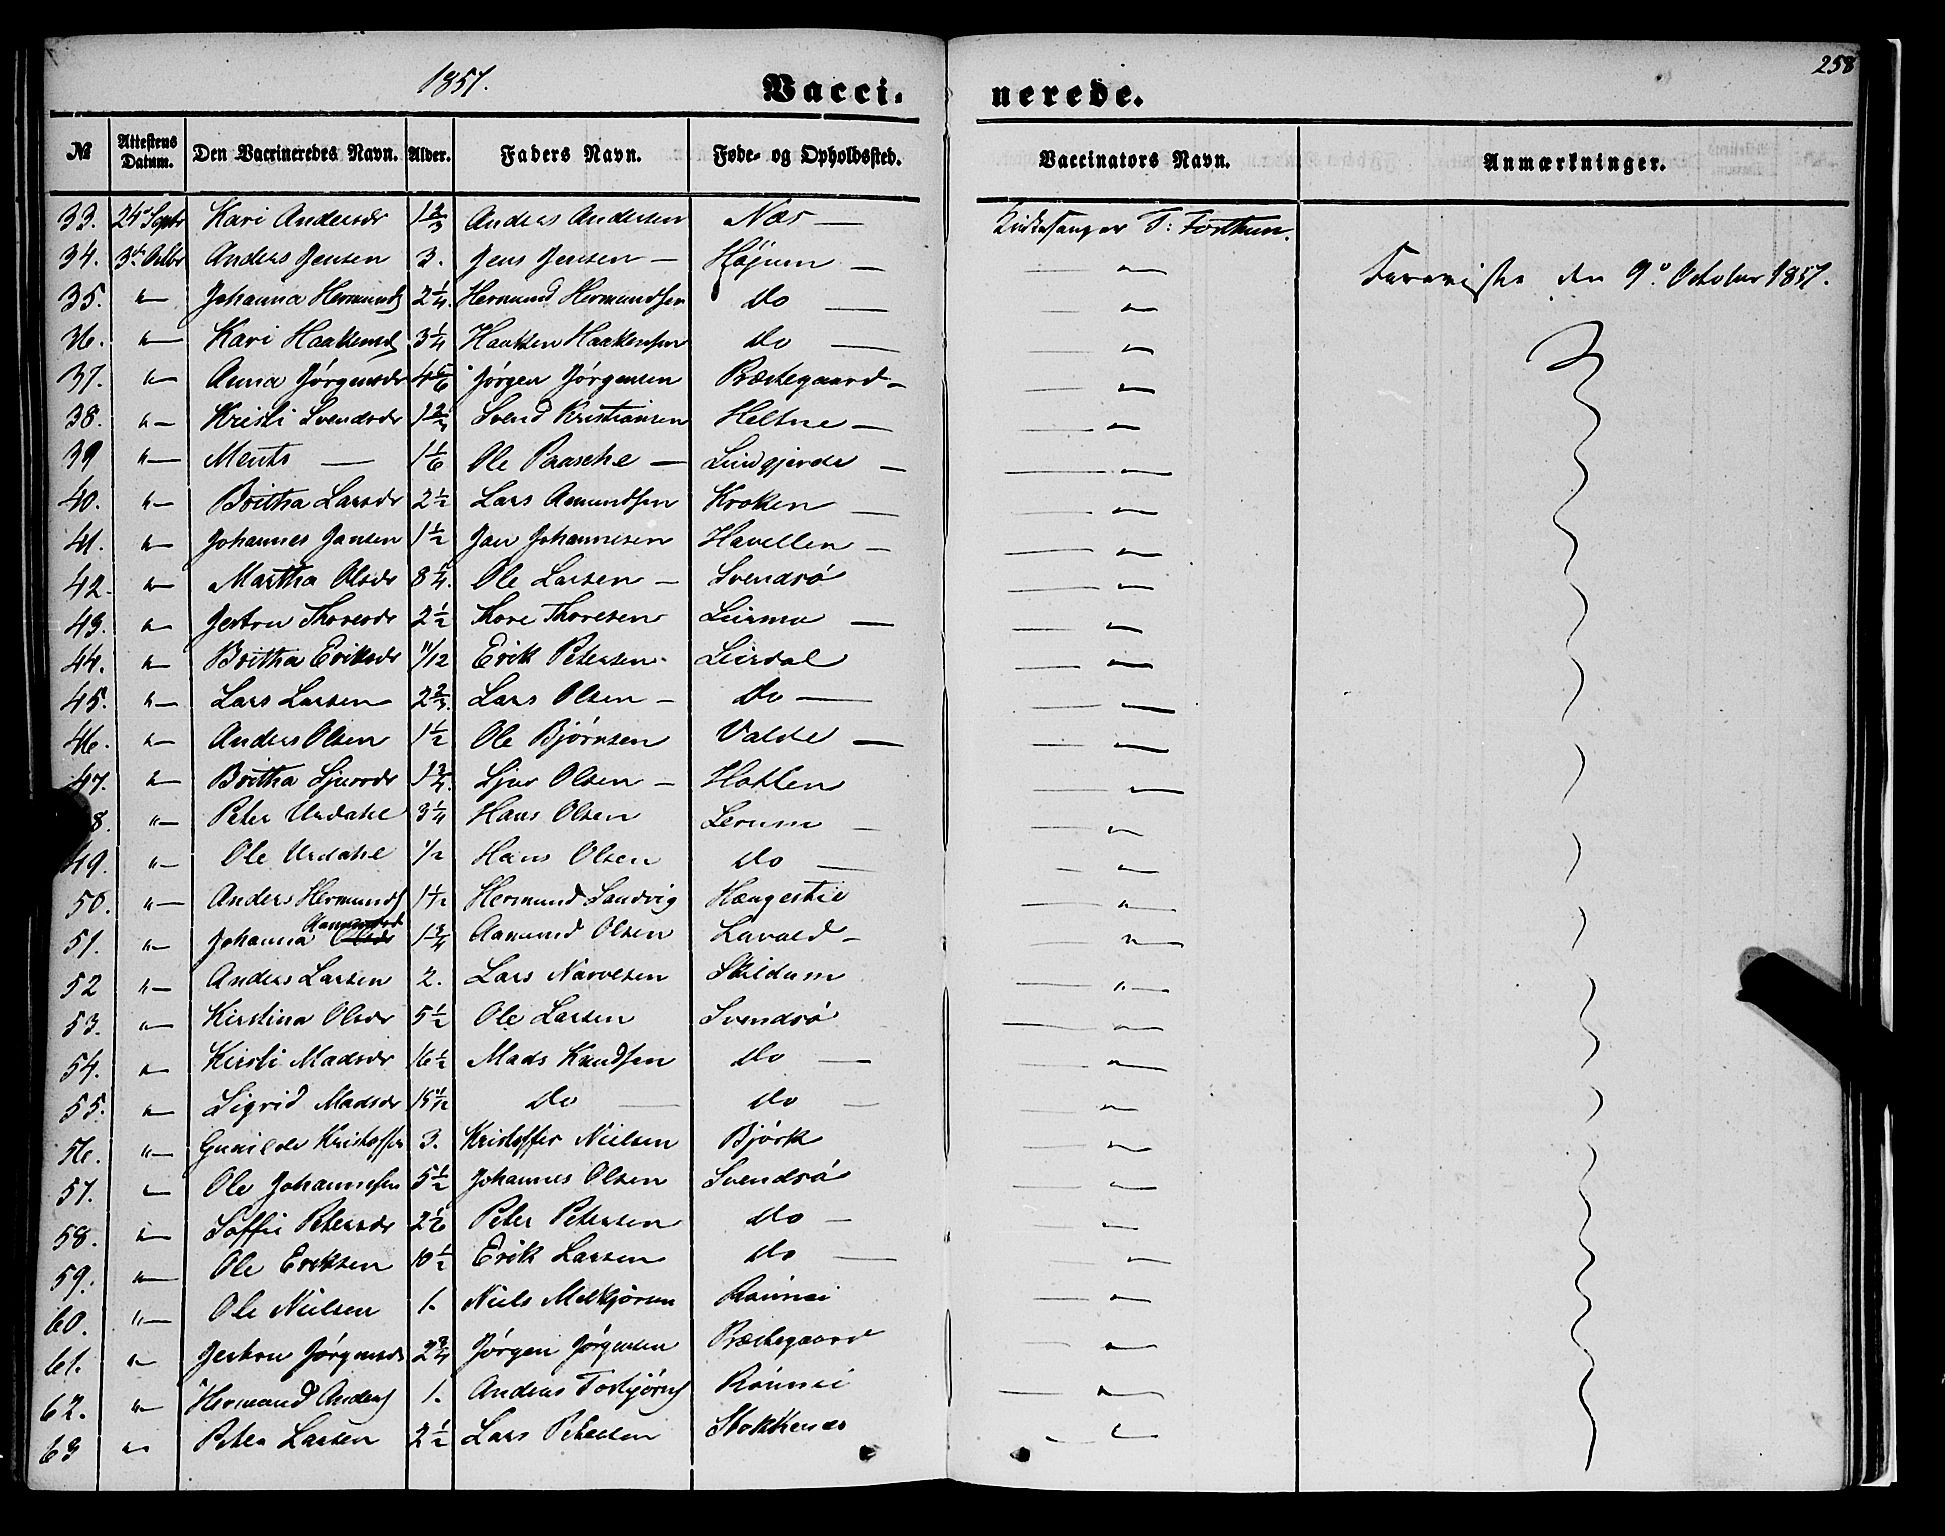 1857. Vacci- nerede. 258
№ Attestens Datum. Den Vaccineredes Navn. Alder. Faders Navn. Føde- og Opholdssted. Vaccinators Navn. Anmærkninger.
33. 24de Septbr Kari Andersdr 1 2/3 Anders Andersen Næs — Kirkesanger T: Forthun.
34. 3die Octbr Anders Jensen 3. Jens Jensen — Høyum — — " —
Foreviste den 9de October 1857.
35. " — Johanna Hermunds 2 1/4. Hermund Hermundsen do — — " —
36. " — Kari Haakensd 3 1/4 Haaken Haakensen do — — " —
37. " — Anna Jørgensdr 4 5/6 Jørgen Jørgensen Præstegaard — — " —
38. " — Kristi Svendsdr 1 2/3 Svend Kristiansen Heltne — — " —
39 " — Ments — 1 1/6 Ole Paasche — — — " —
40. " — Britha Larsdr 2 1/2 Lars Amundsen Kroken — — " —
41. " — Johannes Jansen 1 1/2 Jan Johannesen Havellen — — " —
42. " — Martha Olsdr 8 1/4. Ole Larsen — Svendsø — " —
43. " — Jertru Thoresdr 2 1/2 Thore Thoresen Leirmo — — " —
44. " — Britha Eriksdr 11/12 Erik Petersen Leirdal — " —
45. " — Lars Larsen 2 2/3. Lars Olsen — do — — " —
46. " — Anders Olsen 1 1/2 Ole Bjørnsen Valde — — " —
47. " — Britha Sjursdr 1 3/4. Sjur Olsen — Hatlen — " —
48. " — Peter Urdahl 3 1/4 Hans Olsen Lerum — — " —
49. " — Ole Urdahl 1/2 Hans Olsen do — — " —
50. " — Anders Hermunds 1 1/2 Hermund Sandvig Hængestil — " —
51. " — Johanna Aamundsd 1 3/4 Aamund Olsen — — " —
52 " — Anders Larsen 2. Lars Narvesen Skildum — " —
53. " — Kirstina Olsdr 5 1/2 Ole Larsen Svendsø — " —
54. " — Kirsti Madsdr 16 1/2 Mads Knudsen do — — " —
55. " — Sigrid Madsdr 15 do — do — — " —
56. " — Gunilde Kristoffer 3. Kristoffer Nielsen Bjørk — " —
57. " — Ole Johannesen 5 1/2 Johannes Olsen Svendsø — " —
58. " — Soffie Petersdr 2 1/6 Peter Petersen do — — " —
59. " — Ole Eriksen 10 1/2 Erik Larsen do — — " —
60. " — Ole Nielsen 1. Niels Melkjørsen Røinei — " —
61. " — Jertru Jørgensdr 2 3/4 Jørgen Jørgensen Præstegaard — " —
62. " — Hermund Anders 1. Anders Torbjørns Røinei — " —
63 " — Peter Larsen 2 1/2 Lars Petersen Stokkenæs — " —